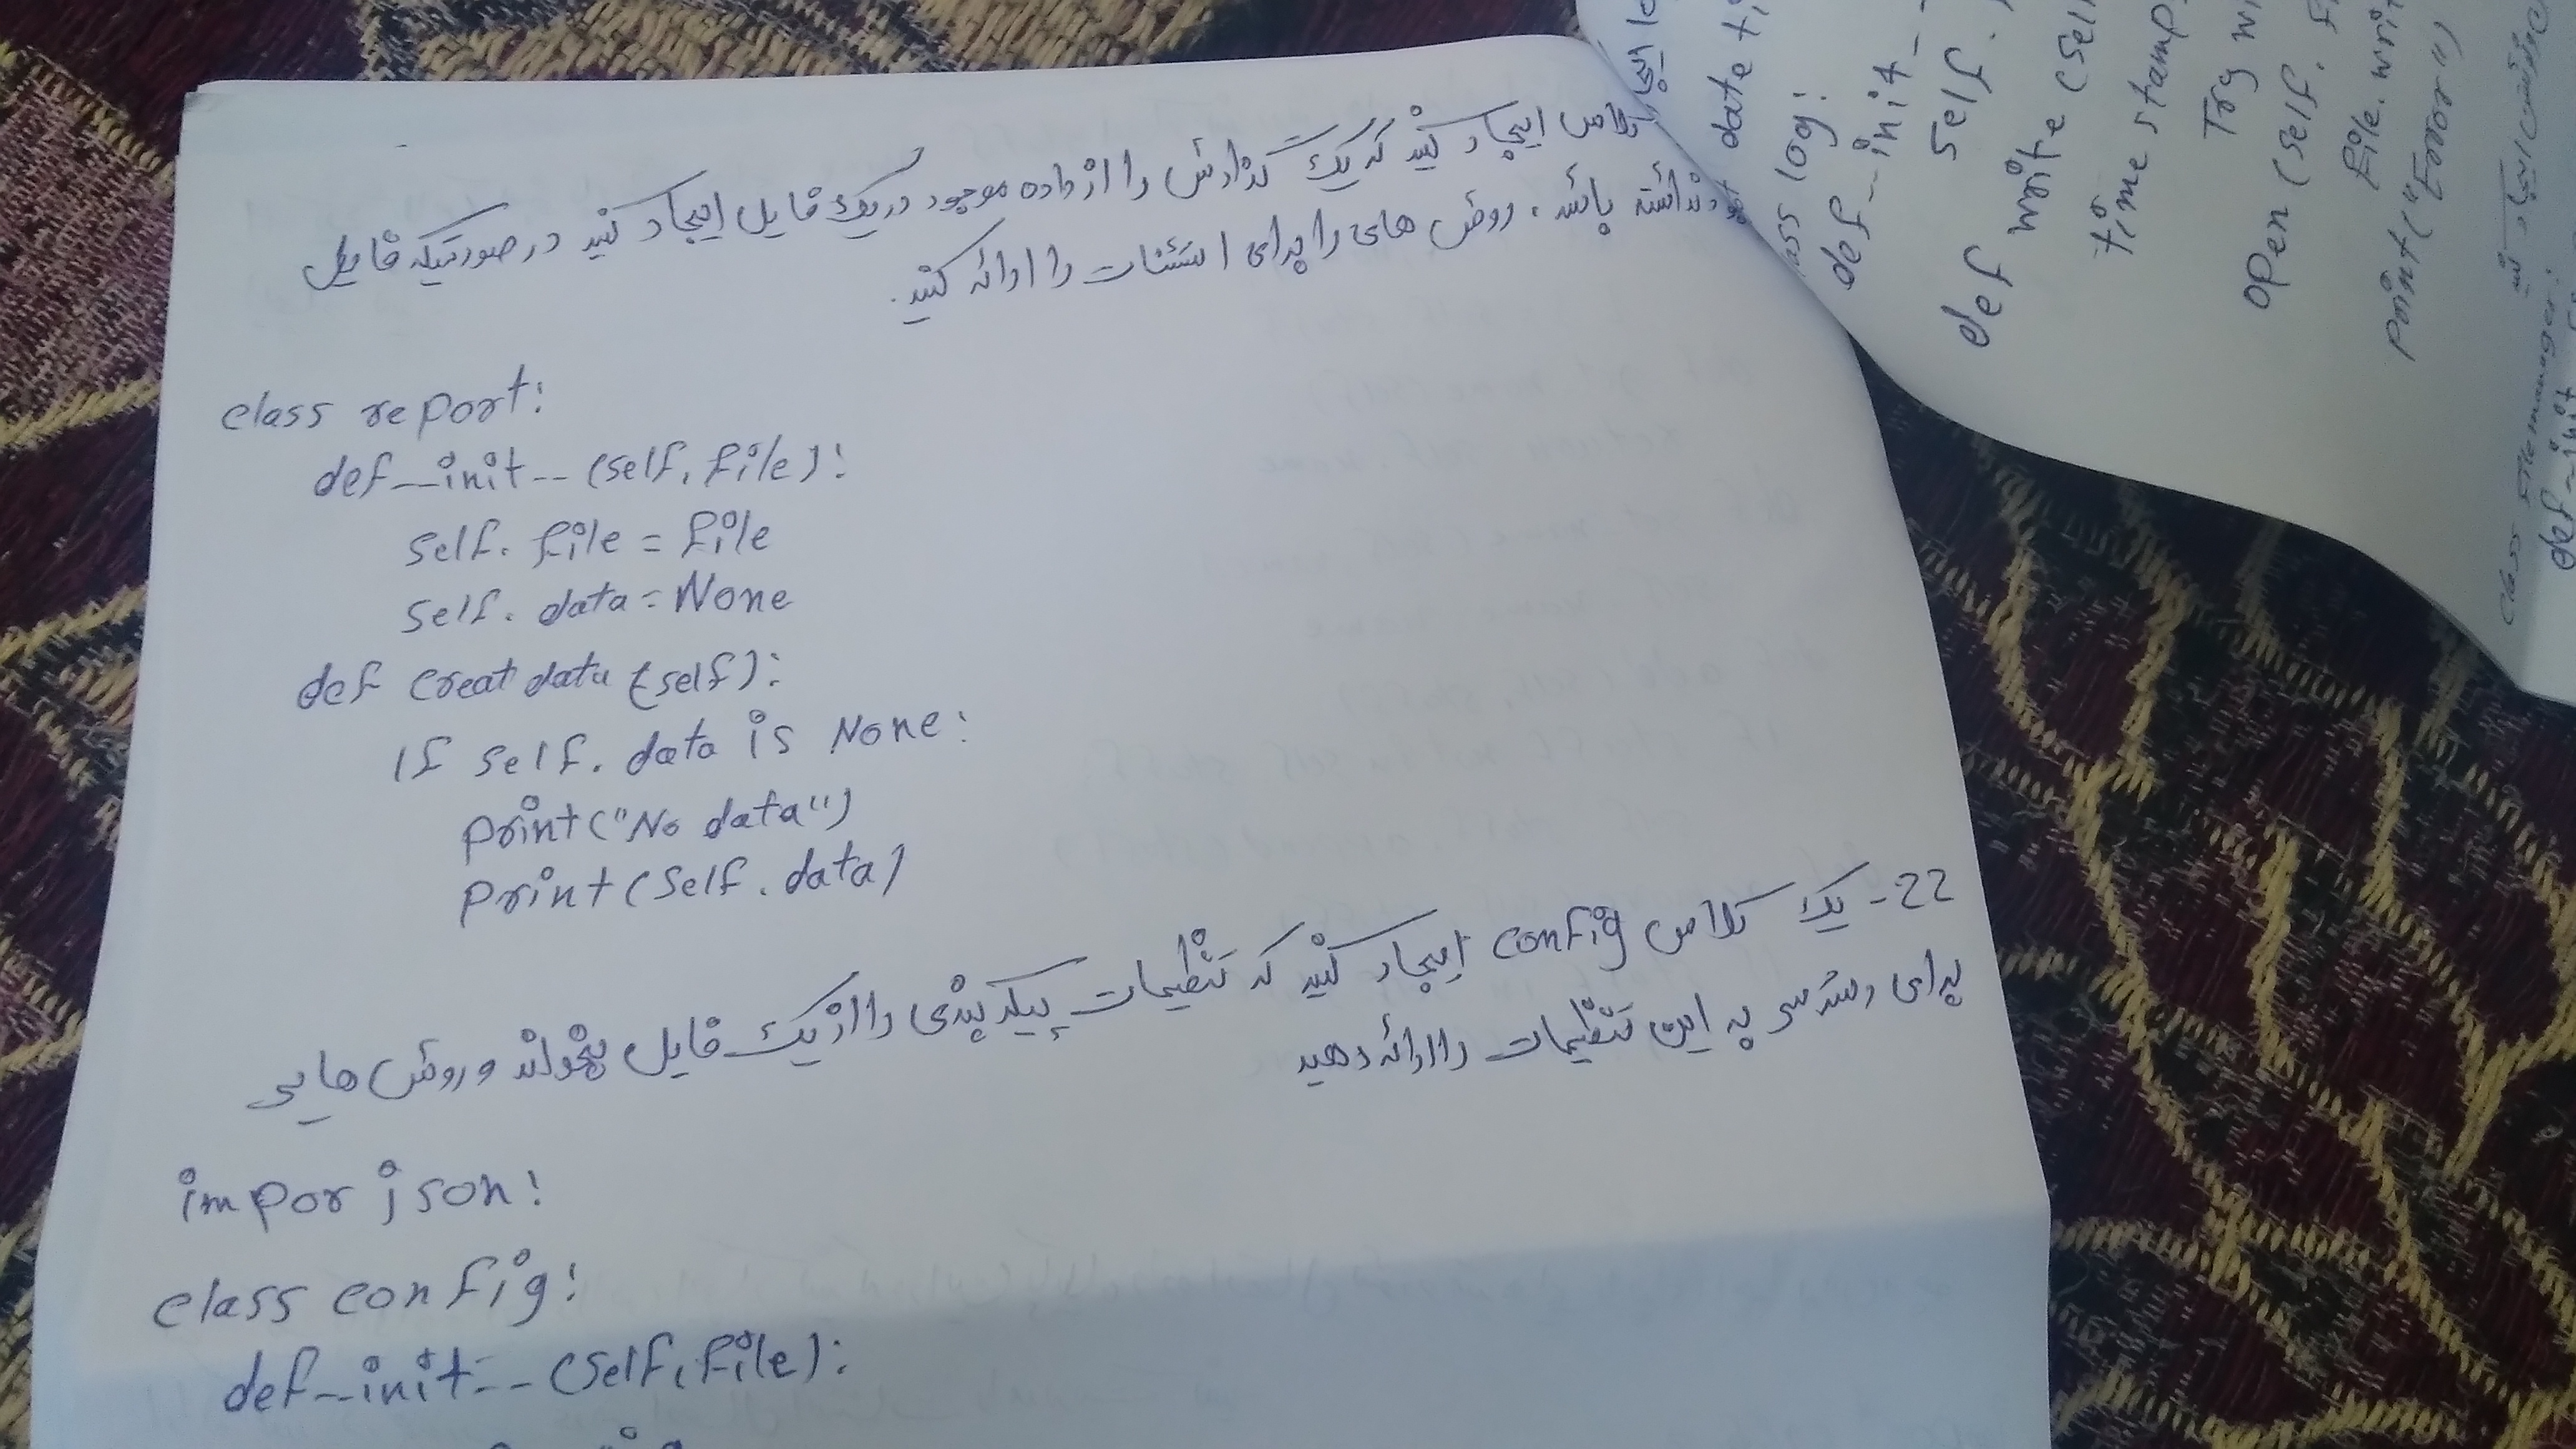 کلاس ایجاد کنید که یک گذارش را از داده موجود در یک فایل ایجاد کند در صورتیکه فایل
وجود نداشته باشد، روش های را برای استثنات را ارائه کنید.
class report:
def __init__(self, file):
self.file = file
self.data = None
def creatdata(self):
if self.data is None:
print("No data")
print(self.data)
22- یک کلاس config ایجاد کنید که تنظیمات پیکربندی را از یک فایل بخواند و روش های
برای دسترسی به این تنظیمات را ارائه دهید
impor json:
class config:
def __init__(self, file):
date ti
ass log:
def __init__
self.
def write (sel
time stamp
Try wi
open (self. fi
file. writ
print("Error")
ایجاد کنید
class Filemanager:
def __init